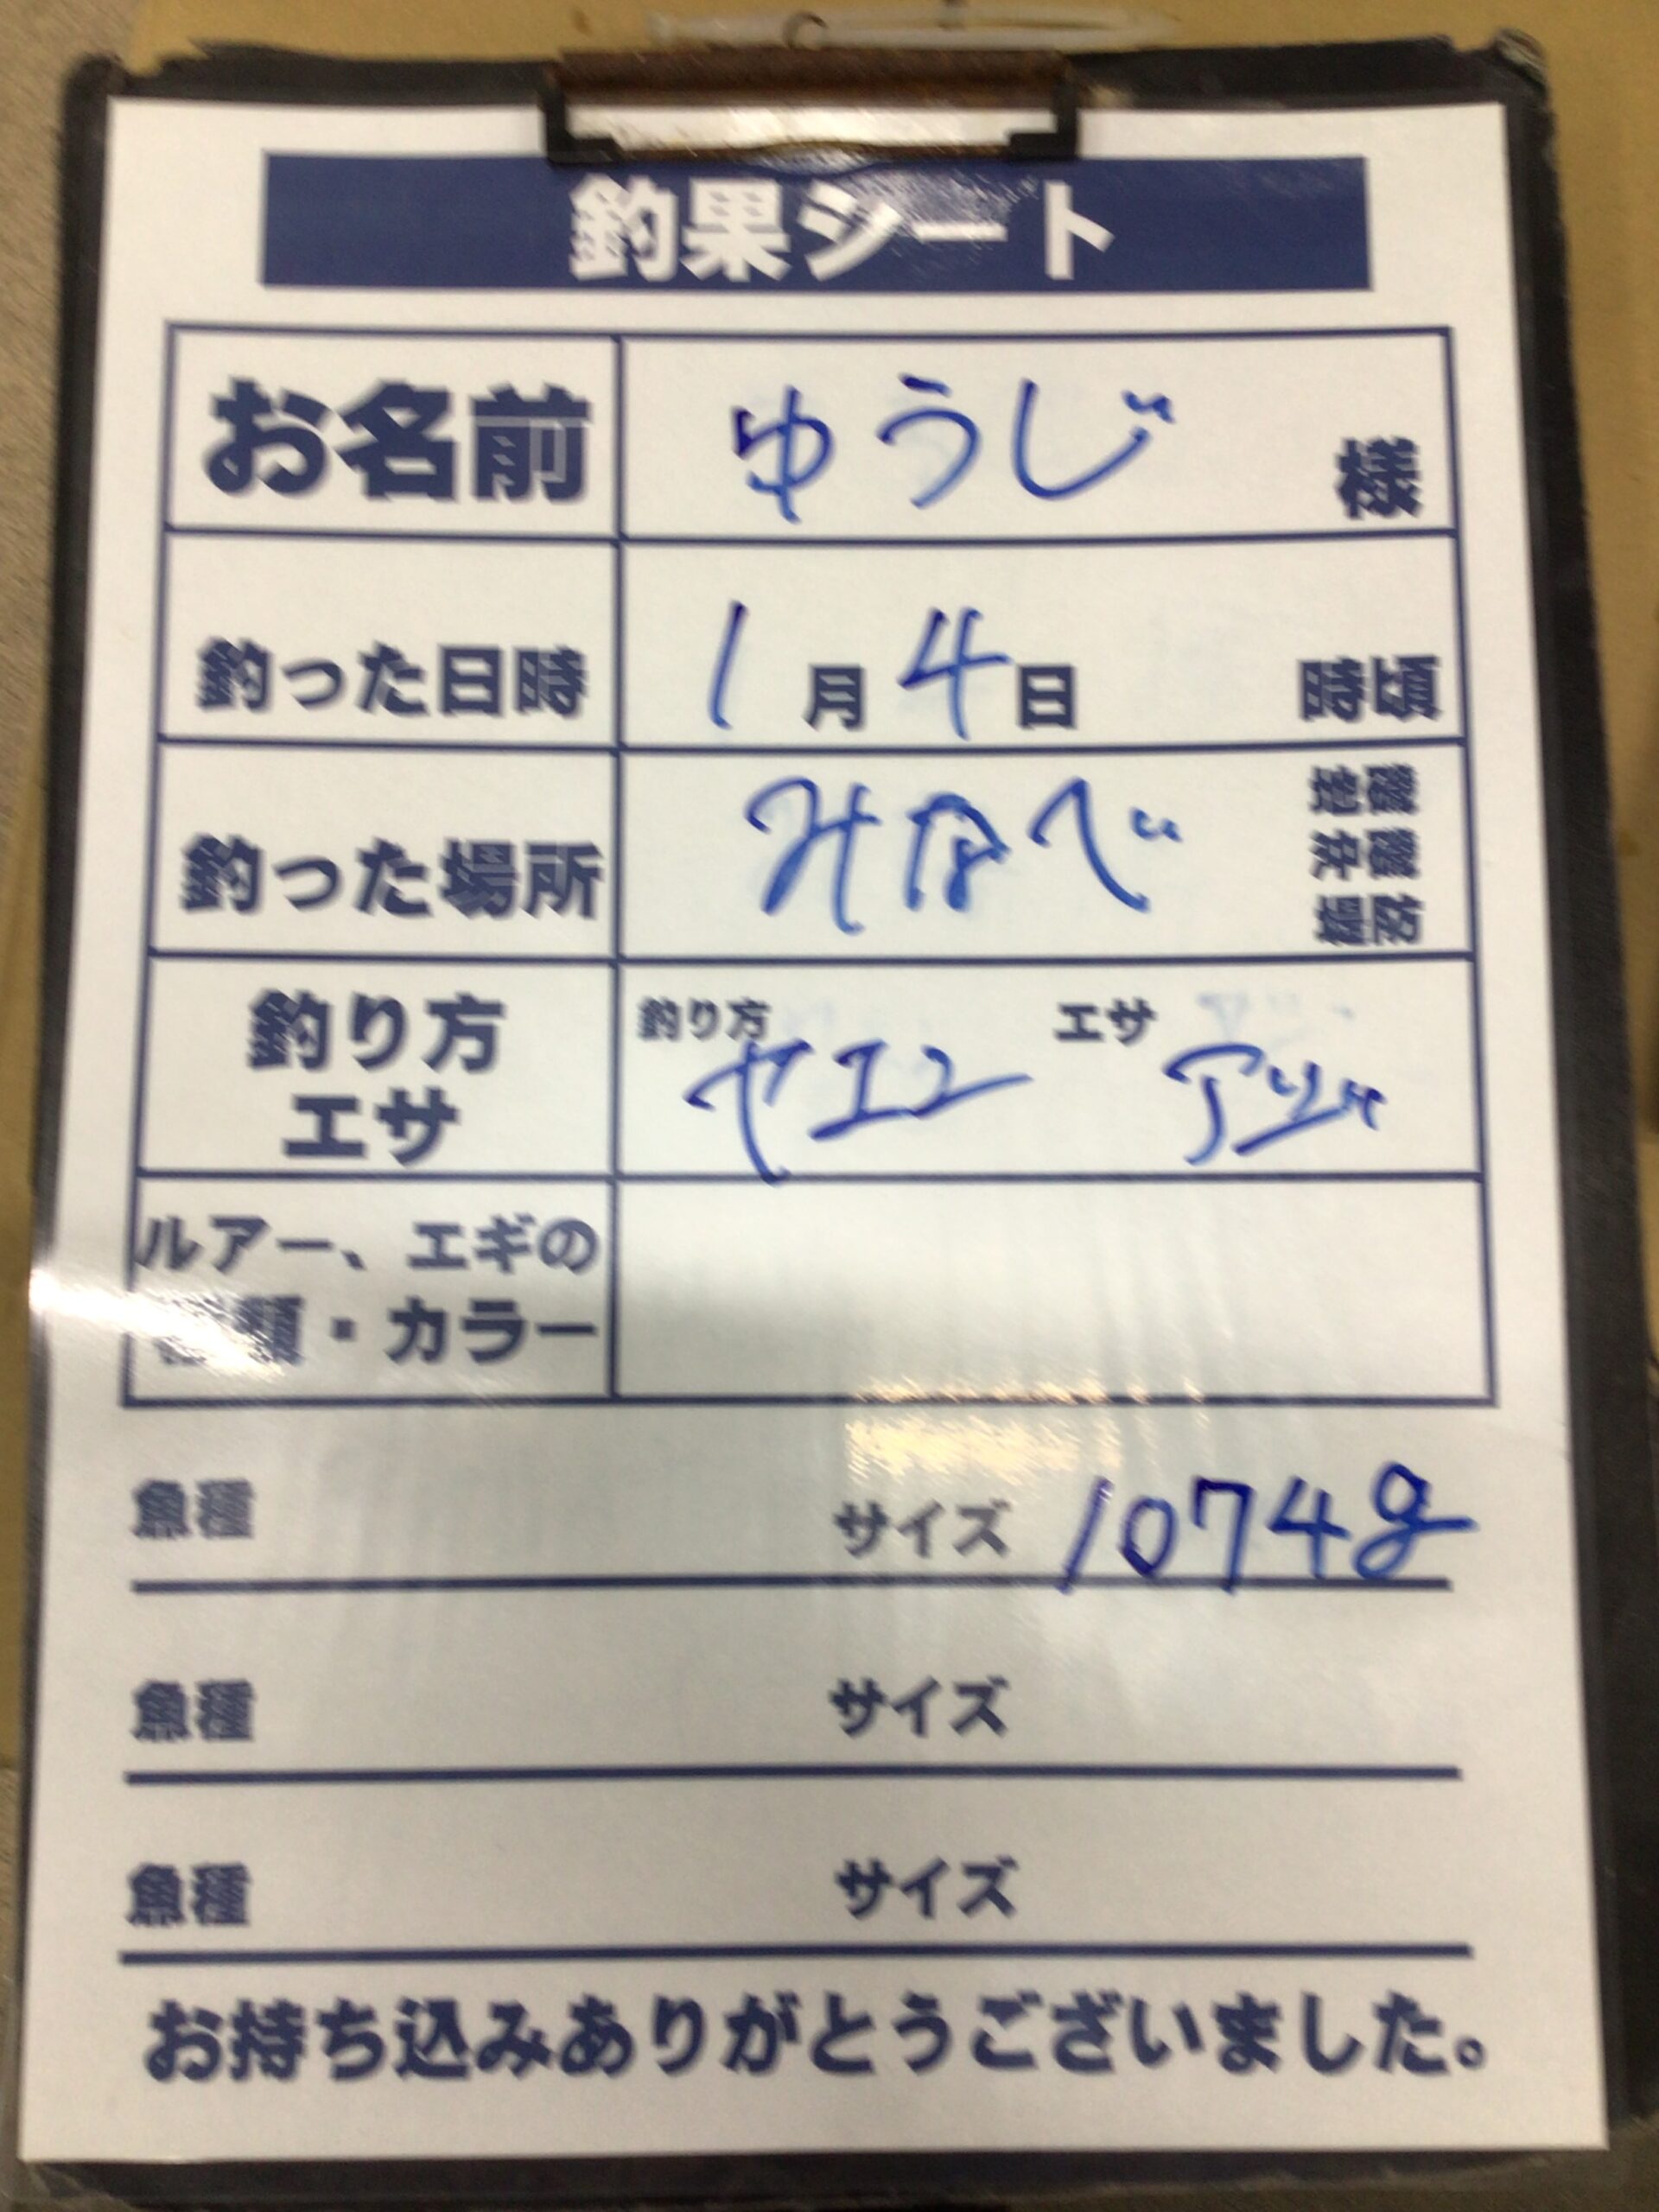 釣果シート
お名前 ゆうじ 様
釣った日時 1月4日 時頃
釣った場所 みなべ 地磯
沖磯
堤防
釣り方 釣り方 ヤエン エサ アジ
エサ
ルアー、エギの
種類・カラー
魚種 サイズ 1074g
魚種 サイズ
魚種 サイズ
お持ち込みありがとうございました。